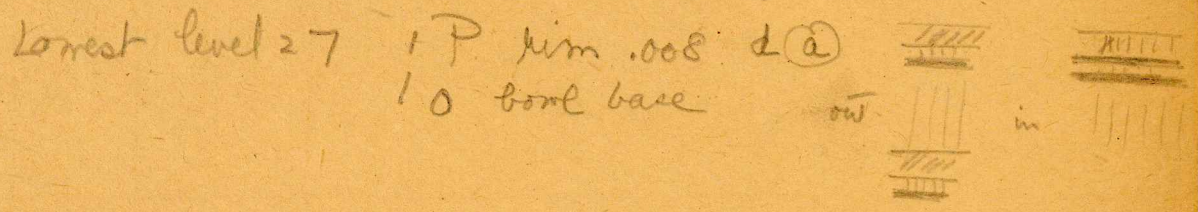 Lowest level 27 1 P rim .008 d (a)
1 O bowl base out in